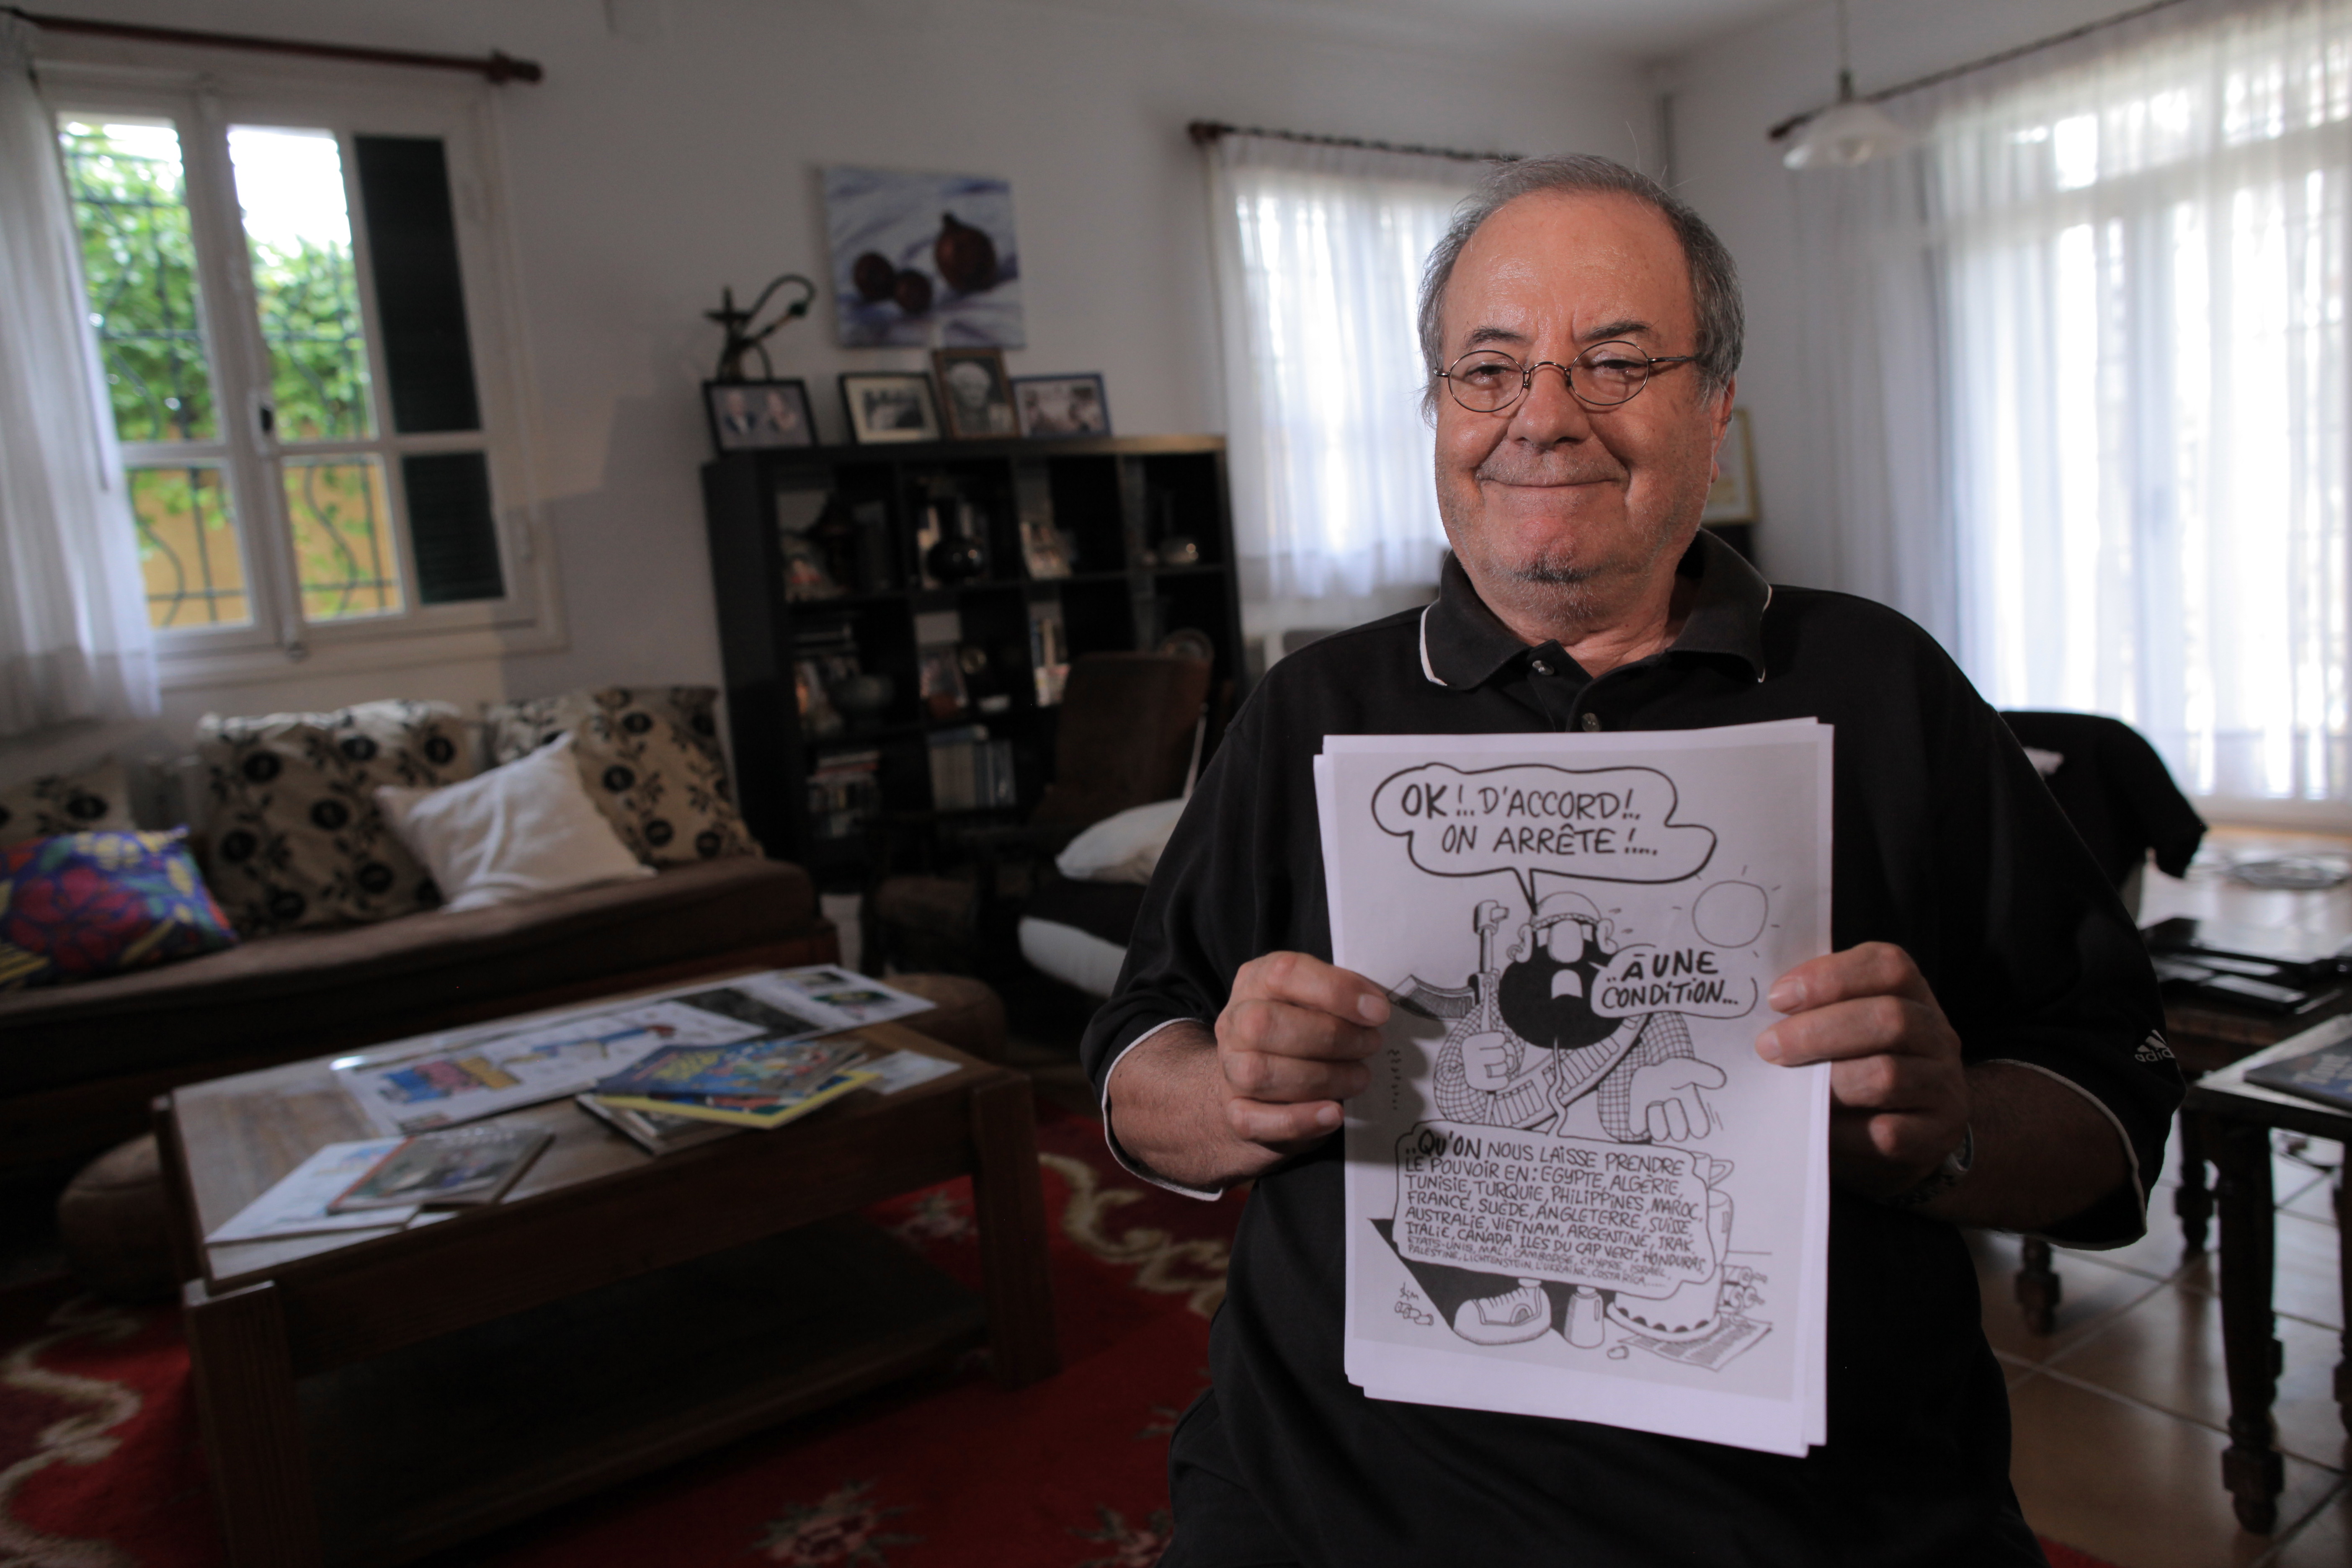 OK!.. D'ACCORD!..
ON ARRÊTE!....
..À UNE
CONDITION...
..QU'ON NOUS LAISSE PRENDRE
LE POUVOIR EN: EGYPTE, ALGÉRIE,
TUNISIE, TURQUIE, PHILIPPINES, MAROC,
FRANCE, SUÈDE, ANGLETERRE, SUISSE
AUSTRALIE, VIETNAM, ARGENTINE, IRAK,
ITALIE, CANADA, ILES DU CAP VERT, HONDURAS,
ETATS-UNIS, MALI, CAMBODGE, CHYPRE, ISRAEL,
PALESTINE, LICHTENSTEIN, UKRAINE, COSTA RICA.....
Slim
adidas